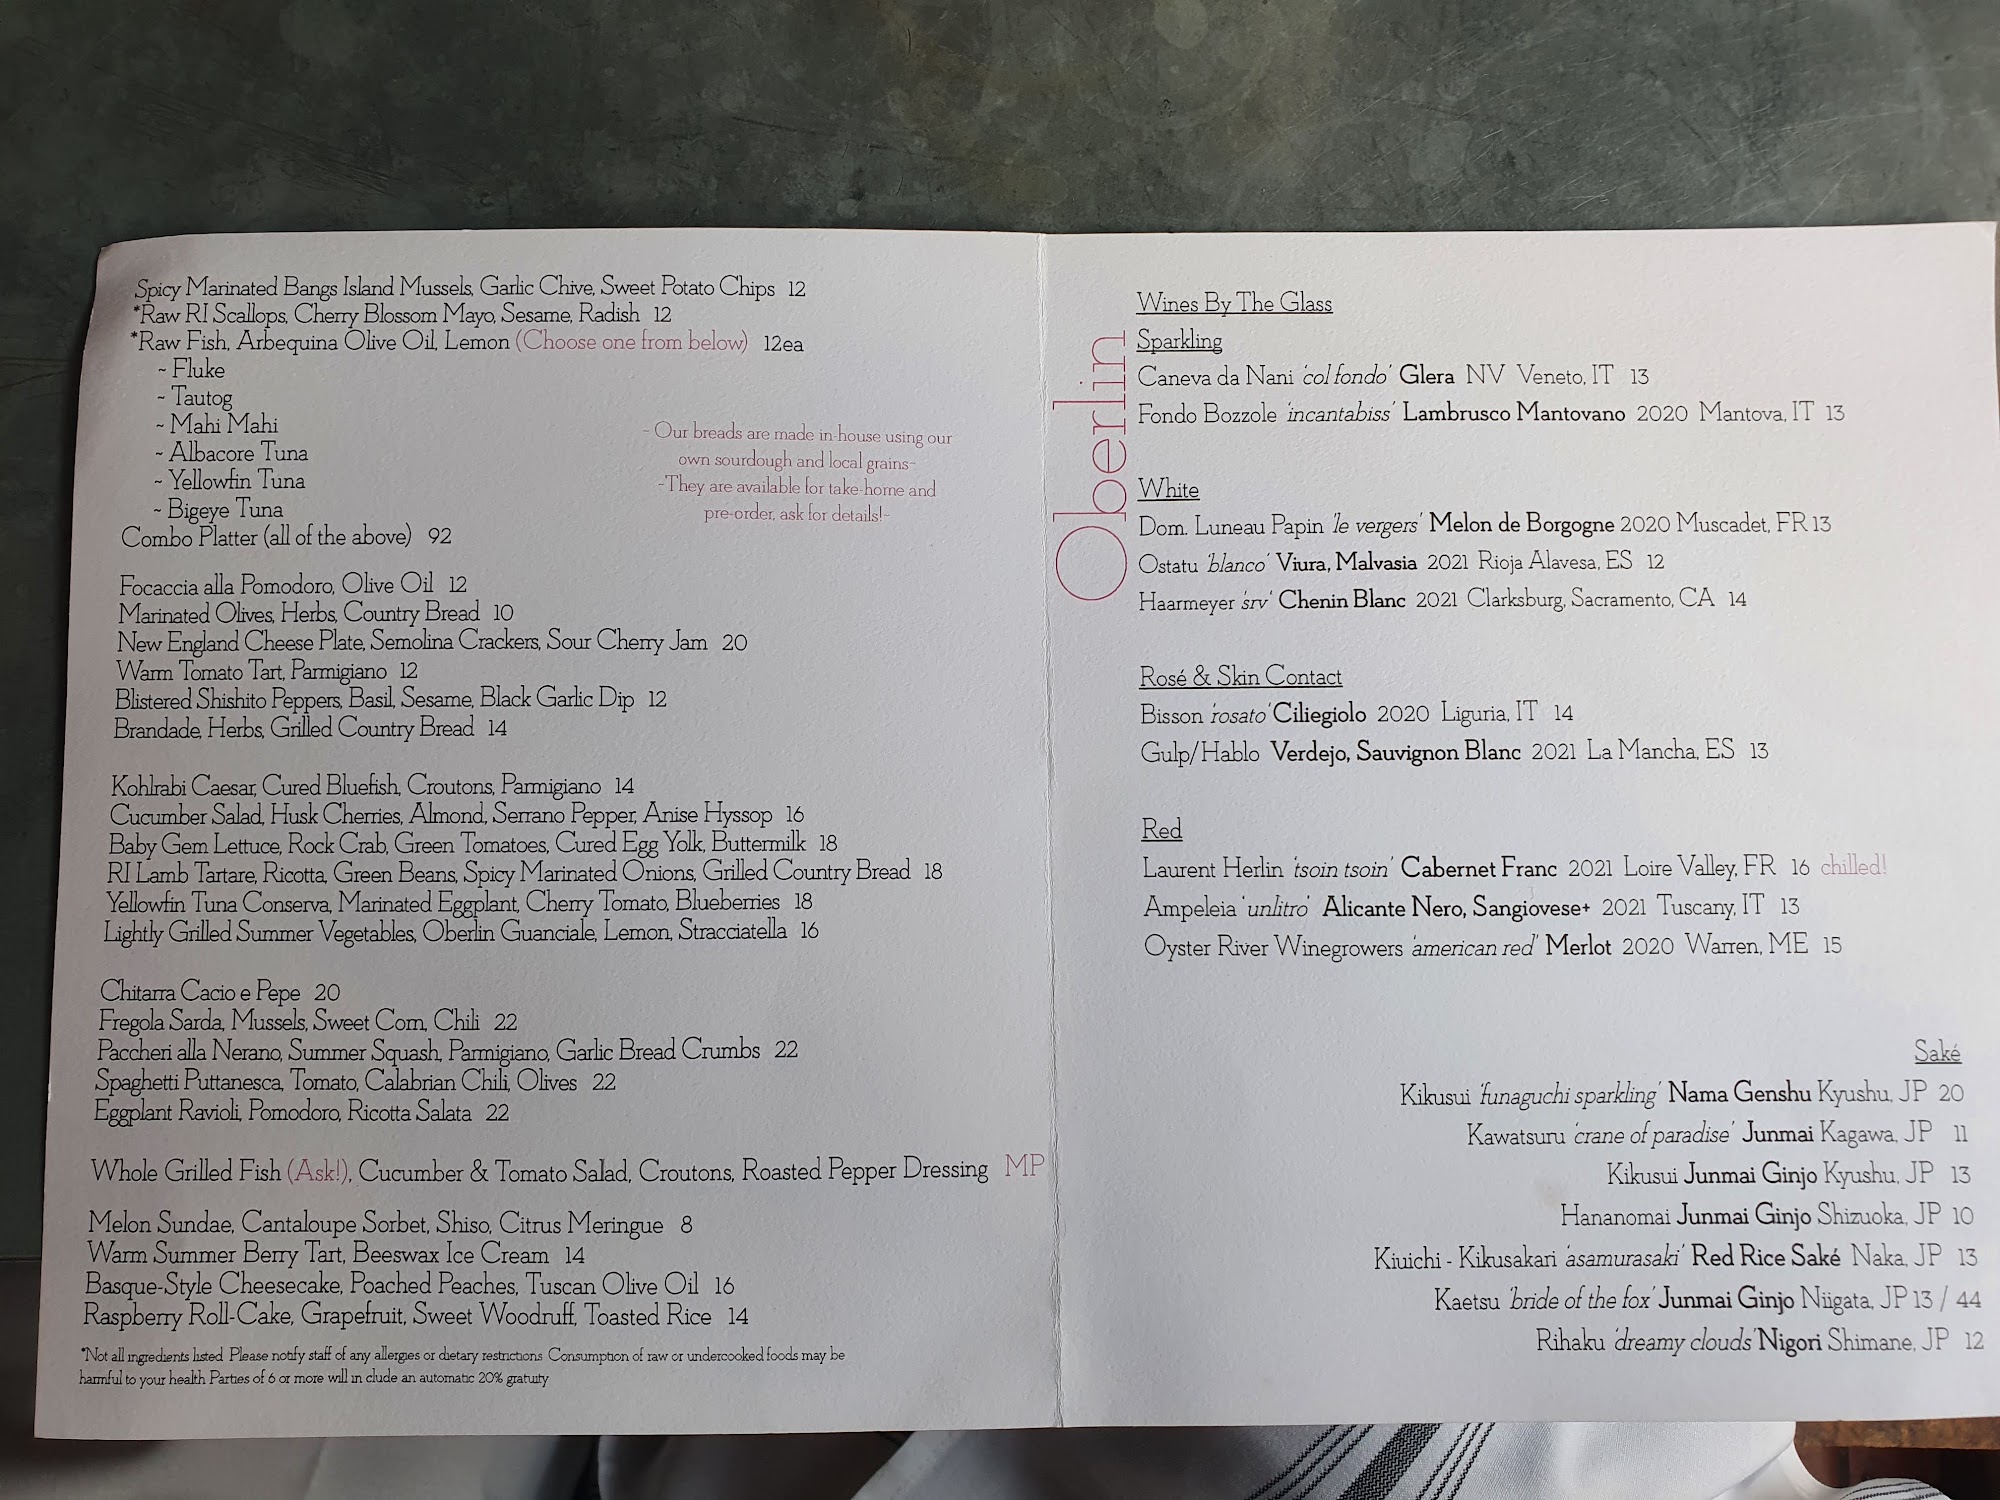 Spicy Marinated Bangs Island Mussels, Garlic Chive, Sweet Potato Chips 12
*Raw RI Scallops, Cherry Blossom Mayo, Sesame, Radish 12
*Raw Fish, Arbequina Olive Oil, Lemon (Choose one from below) 12ea
~ Fluke
~ Tautog
~ Mahi Mahi
~ Albacore Tuna
~ Yellowfin Tuna
~ Bigeye Tuna
Combo Platter (all of the above) 92
- Our breads are made in-house using our
own sourdough and local grains-
-They are available for take-home and
pre-order, ask for details!-
Focaccia alla Pomodoro, Olive Oil 12
Marinated Olives, Herbs, Country Bread 10
New England Cheese Plate, Semolina Crackers, Sour Cherry Jam 20
Warm Tomato Tart, Parmigiano 12
Blistered Shishito Peppers, Basil, Sesame, Black Garlic Dip 12
Brandade, Herbs, Grilled Country Bread 14
Kohlrabi Caesar, Cured Bluefish, Croutons, Parmigiano 14
Cucumber Salad, Husk Cherries, Almond, Serrano Pepper, Anise Hyssop 16
Baby Gem Lettuce, Rock Crab, Green Tomatoes, Cured Egg Yolk, Buttermilk 18
RI Lamb Tartare, Ricotta, Green Beans, Spicy Marinated Onions, Grilled Country Bread 18
Yellowfin Tuna Conserva, Marinated Eggplant, Cherry Tomato, Blueberries 18
Lightly Grilled Summer Vegetables, Oberlin Guanciale, Lemon, Stracciatella 16
Chitarra Cacio e Pepe 20
Fregola Sarda, Mussels, Sweet Corn, Chili 22
Paccheri alla Nerano, Summer Squash, Parmigiano, Garlic Bread Crumbs 22
Spaghetti Puttanesca, Tomato, Calabrian Chili, Olives 22
Eggplant Ravioli, Pomodoro, Ricotta Salata 22
Whole Grilled Fish (Ask!), Cucumber & Tomato Salad, Croutons, Roasted Pepper Dressing MP
Melon Sundae, Cantaloupe Sorbet, Shiso, Citrus Meringue 8
Warm Summer Berry Tart, Beeswax Ice Cream 14
Basque-Style Cheesecake, Poached Peaches, Tuscan Olive Oil 16
Raspberry Roll-Cake, Grapefruit, Sweet Woodruff, Toasted Rice 14
*Not all ingredients listed Please notify staff of any allergies or dietary restrictions Consumption of raw or undercooked foods may be
harmful to your health Parties of 6 or more will in clude an automatic 20% gratuity
Oberlin
Wines By The Glass
Sparkling
Caneva da Nani 'col fondo' Glera NV Veneto, IT 13
Fondo Bozzole 'incantabiss' Lambrusco Mantovano 2020 Mantova, IT 13
White
Dom. Luneau Papin 'le vergers' Melon de Borgogne 2020 Muscadet, FR 13
Ostatu 'blanco' Viura, Malvasia 2021 Rioja Alavesa, ES 12
Haarmeyer 'srv' Chenin Blanc 2021 Clarksburg, Sacramento, CA 14
Rosé & Skin Contact
Bisson 'rosato' Ciliegiolo 2020 Liguria, IT 14
Gulp/Hablo Verdejo, Sauvignon Blanc 2021 La Mancha, ES 13
Red
Laurent Herlin 'tsoin tsoin' Cabernet Franc 2021 Loire Valley, FR 16 chilled!
Ampeleia 'unlitro' Alicante Nero, Sangiovese+ 2021 Tuscany, IT 13
Oyster River Winegrowers 'american red' Merlot 2020 Warren, ME 15
Saké
Kikusui 'funaguchi sparkling' Nama Genshu Kyushu, JP 20
Kawatsuru 'crane of paradise' Junmai Kagawa, JP 11
Kikusui Junmai Ginjo Kyushu, JP 13
Hananomai Junmai Ginjo Shizuoka, JP 10
Kiuichi - Kikusakari 'asamurasaki' Red Rice Saké Naka, JP 13
Kaetsu 'bride of the fox' Junmai Ginjo Niigata, JP 13 / 44
Rihaku 'dreamy clouds' Nigori Shimane, JP 12